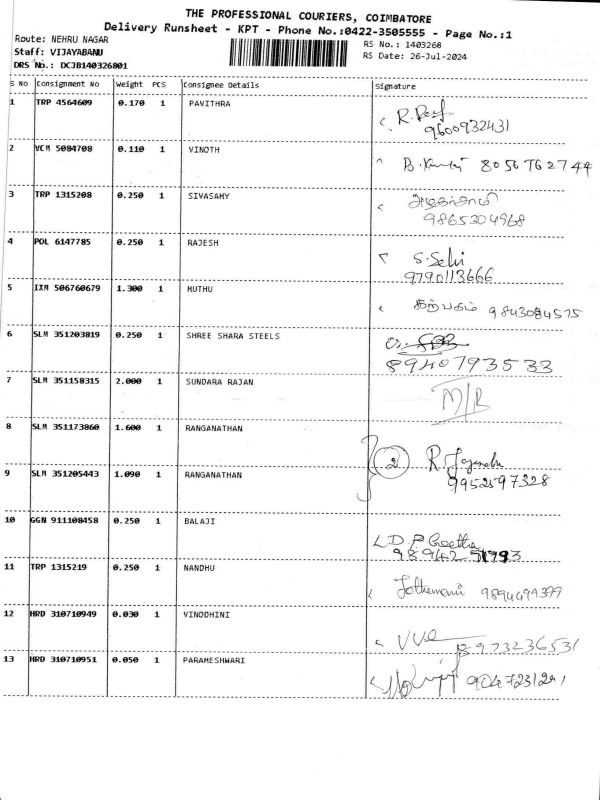 THE PROFESSIONAL COURIERS, COIMBATORE
Delivery Runsheet - KPT - Phone No.:0422-3505555 - Page No.:1
Route: NEHRU NAGAR
RS No.: 1403268
Staff: VIJAYABANU
RS Date: 26-Jul-2024
DRS No.: DCJB140326801
S No Consignment No Weight PCS Consignee Details Signature
1 TRP 4564609 0.170 1 PAVITHRA
9600932431
2 VCM 5084708 0.110 1 VINOTH 8056762744
3 TRP 1315208 0.250 1 SIVASAMY
9865304968
4 POL 6147785 0.250 1 RAJESH
S. Selvi
9790113666
5 IXM 506760679 1.300 1 MUTHU கற்பகம் 9843084575
6 SLM 351203819 0.250 1 SHREE SHARA STEELS
8940793533
7 SLM 351158315 2.000 1 SUNDARA RAJAN
M/R
8 SLM 351173860 1.600 1 RANGANATHAN
2 R.
9 SLM 351205443 1.090 1 RANGANATHAN
9952597328
10 GGN 911108458 0.250 1 BALAJI
D. P. Geetha
11 TRP 1315219 0.250 1 NANDHU
9894499399
12 HRD 310710949 0.030 1 VINODHINI
8973236531
13 HRD 310710951 0.050 1 PARAMESHWARI